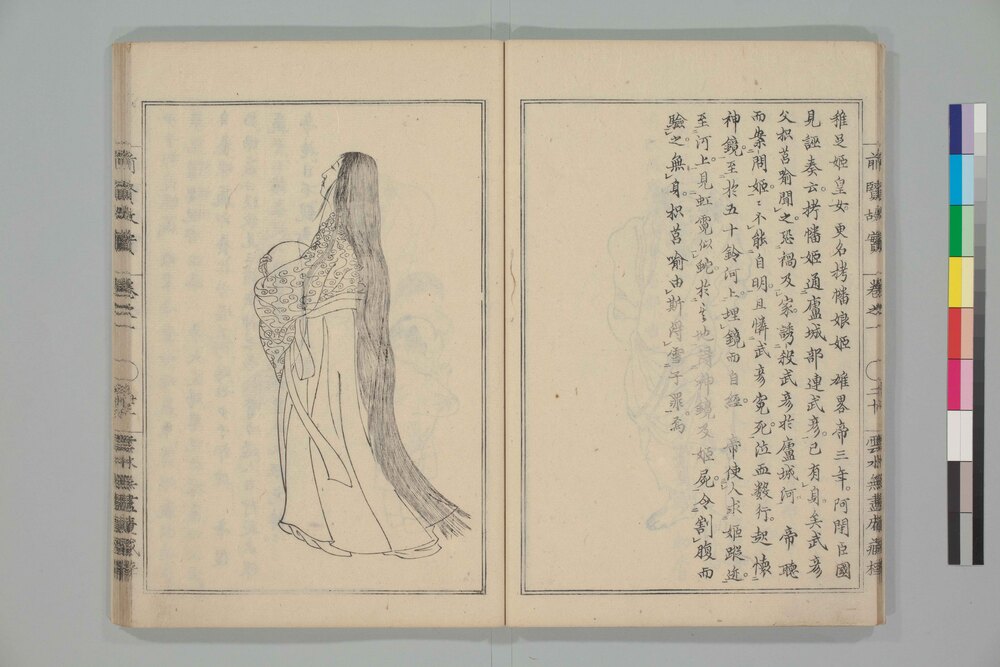 稚足姫皇女更名栲幡娘姫　雄畧帝三年。阿閉臣國
見誣奏云栲幡姫通廬城部連武彦已有身矣武彦
父枳莒喩聞之恐禍及家。誘殺武彦於廬城河　帝聽
而案問姫〻不能自明且憐武彦寃死泣血數行。起懐
神鏡至於五十鈴河上。埋鏡而自經　帝使人求姫蹤迹
至河上。見虹霓似蛇於其地得神鏡及姫屍。令割腹而
驗之無身。枳莒喩由斯得雪子罪焉
前賢故實
卷之一
二十